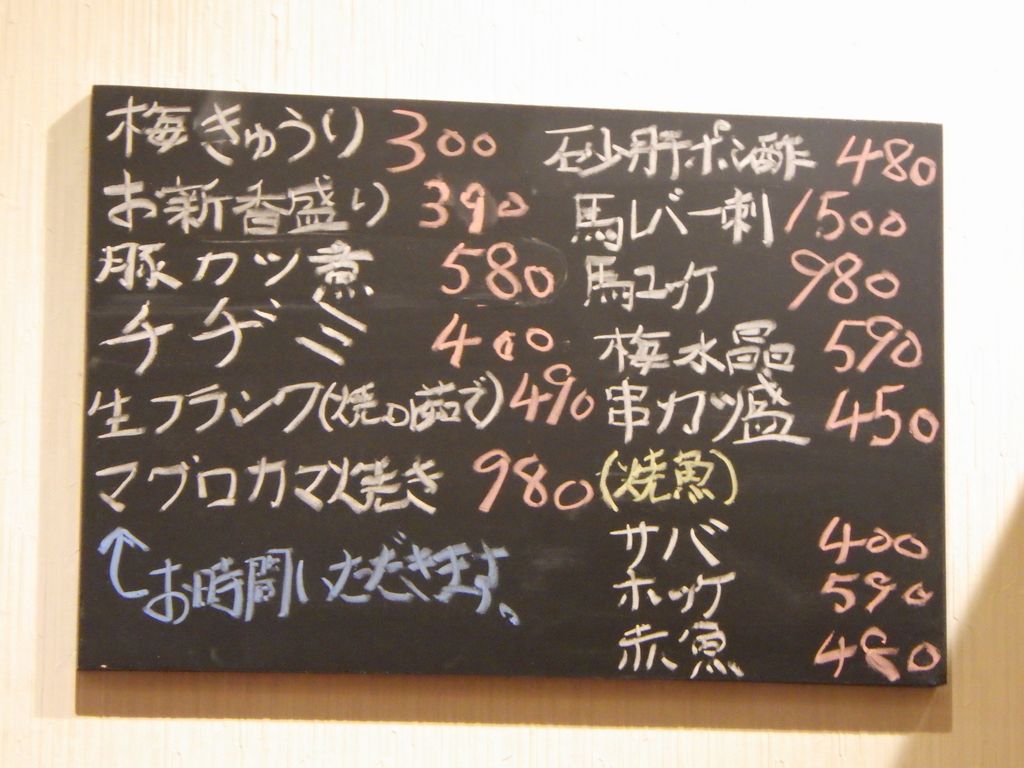 梅きゅうり 300
お新香盛り 390
豚カツ煮 580
チヂミ 400
生フランク(焼or茹で) 490
マグロカマ焼き 980
↑お時間いただきます。
砂肝ポン酢 480
馬レバー刺 1500
馬ユッケ 980
梅水晶 590
串カツ盛 450
(焼魚)
サバ 400
ホッケ 590
赤魚 480